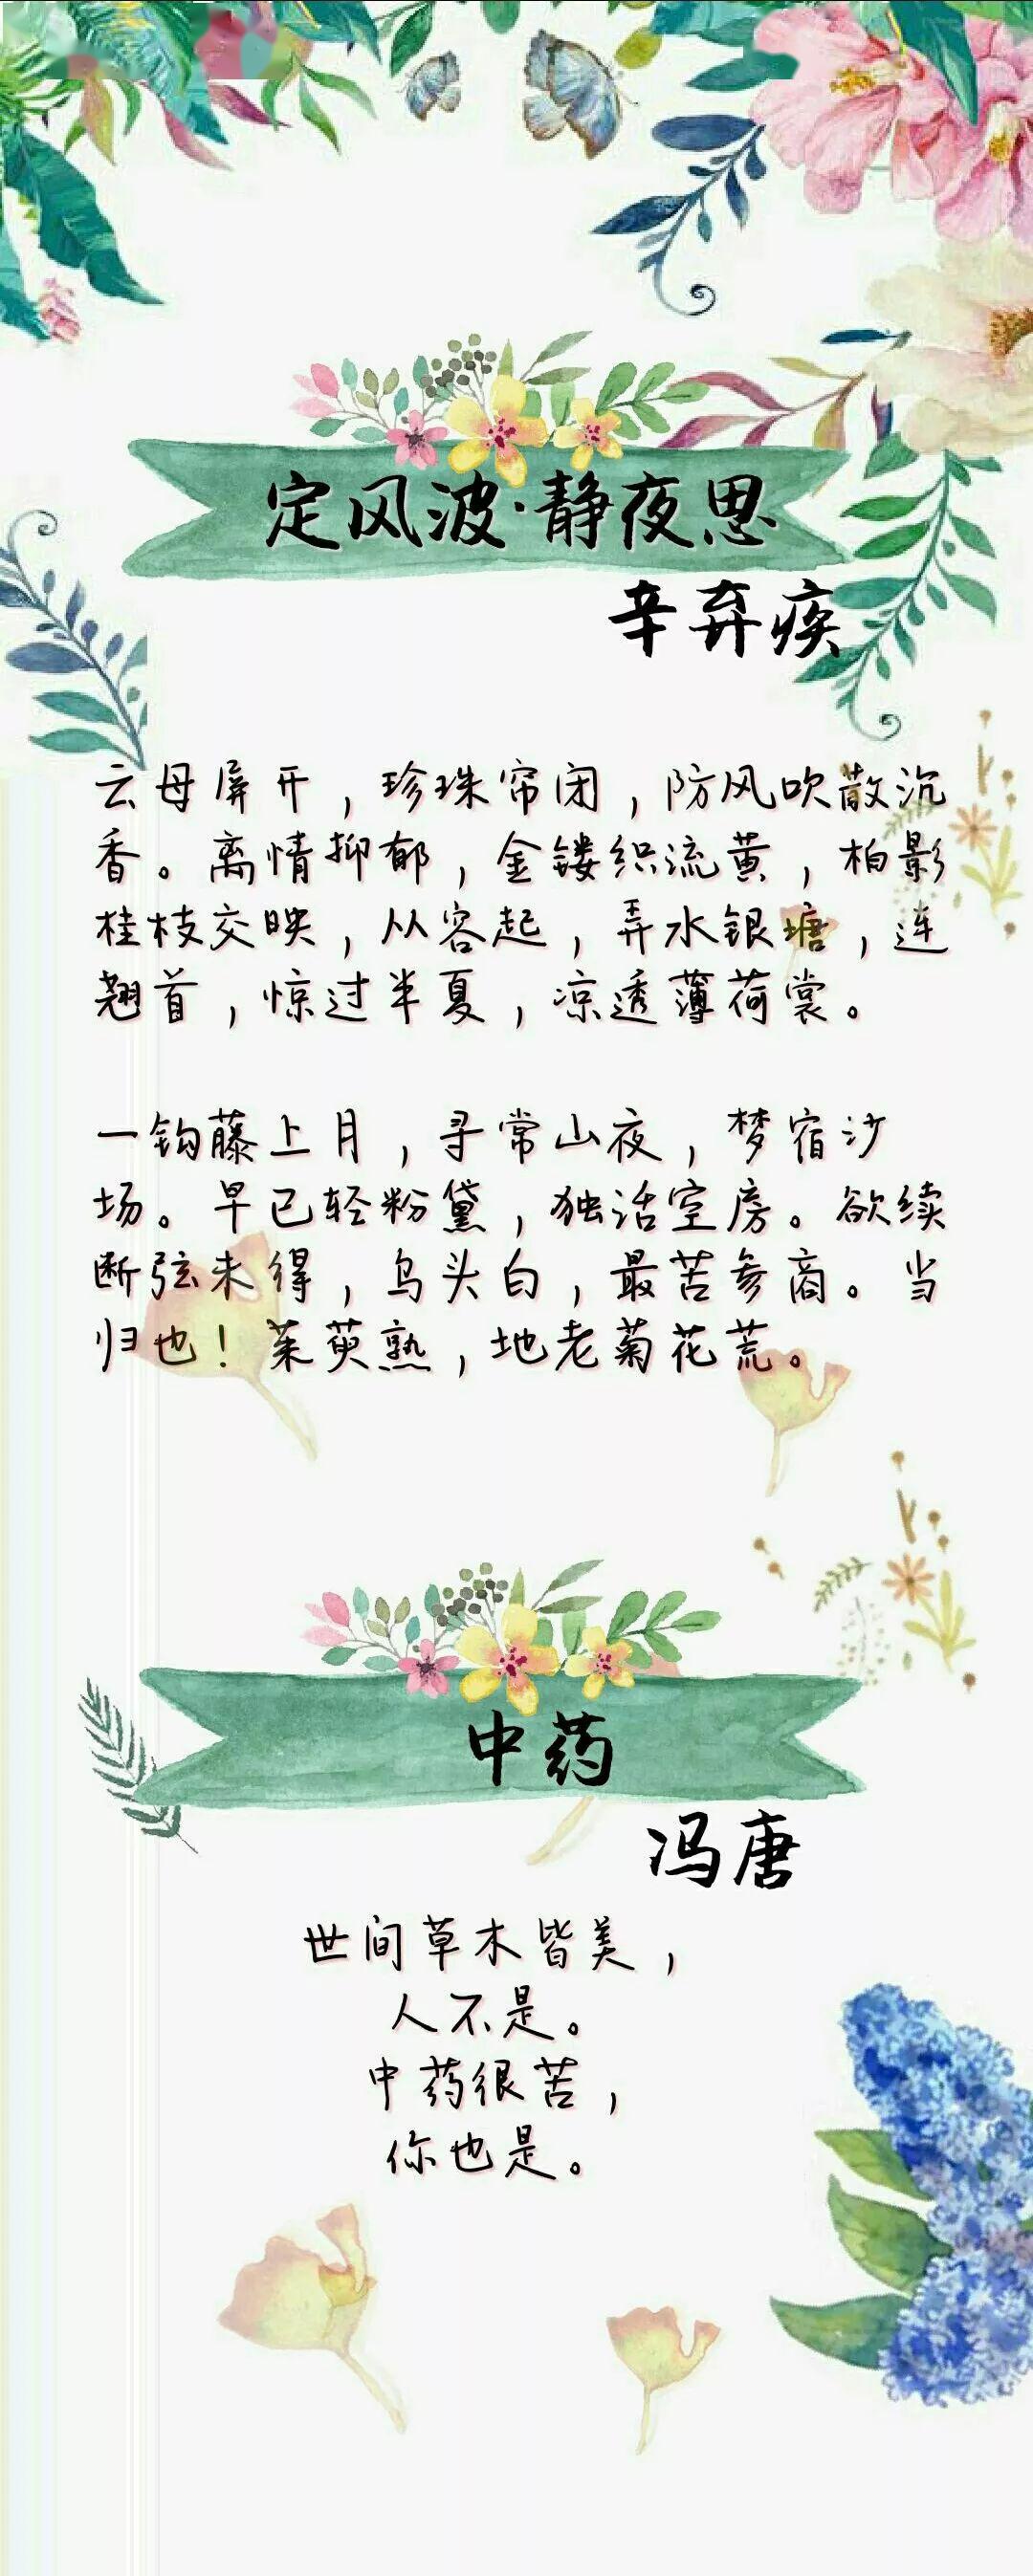 定风波·静夜思
辛弃疾
云母屏开，珍珠帘闭，防风吹散沉
香。离情抑郁，金镂织流黄，柏影
桂枝交映，从容起，弄水银塘，连
翘首，惊过半夏，凉透薄荷裳。
一钩藤上月，寻常山夜，梦宿沙
场。早已轻粉黛，独活空房。欲续
断弦未得，乌头白，最苦参商。当
归也！茱萸熟，地老菊花荒。
中药
冯唐
世间草木皆美，
人不是。
中药很苦，
你也是。